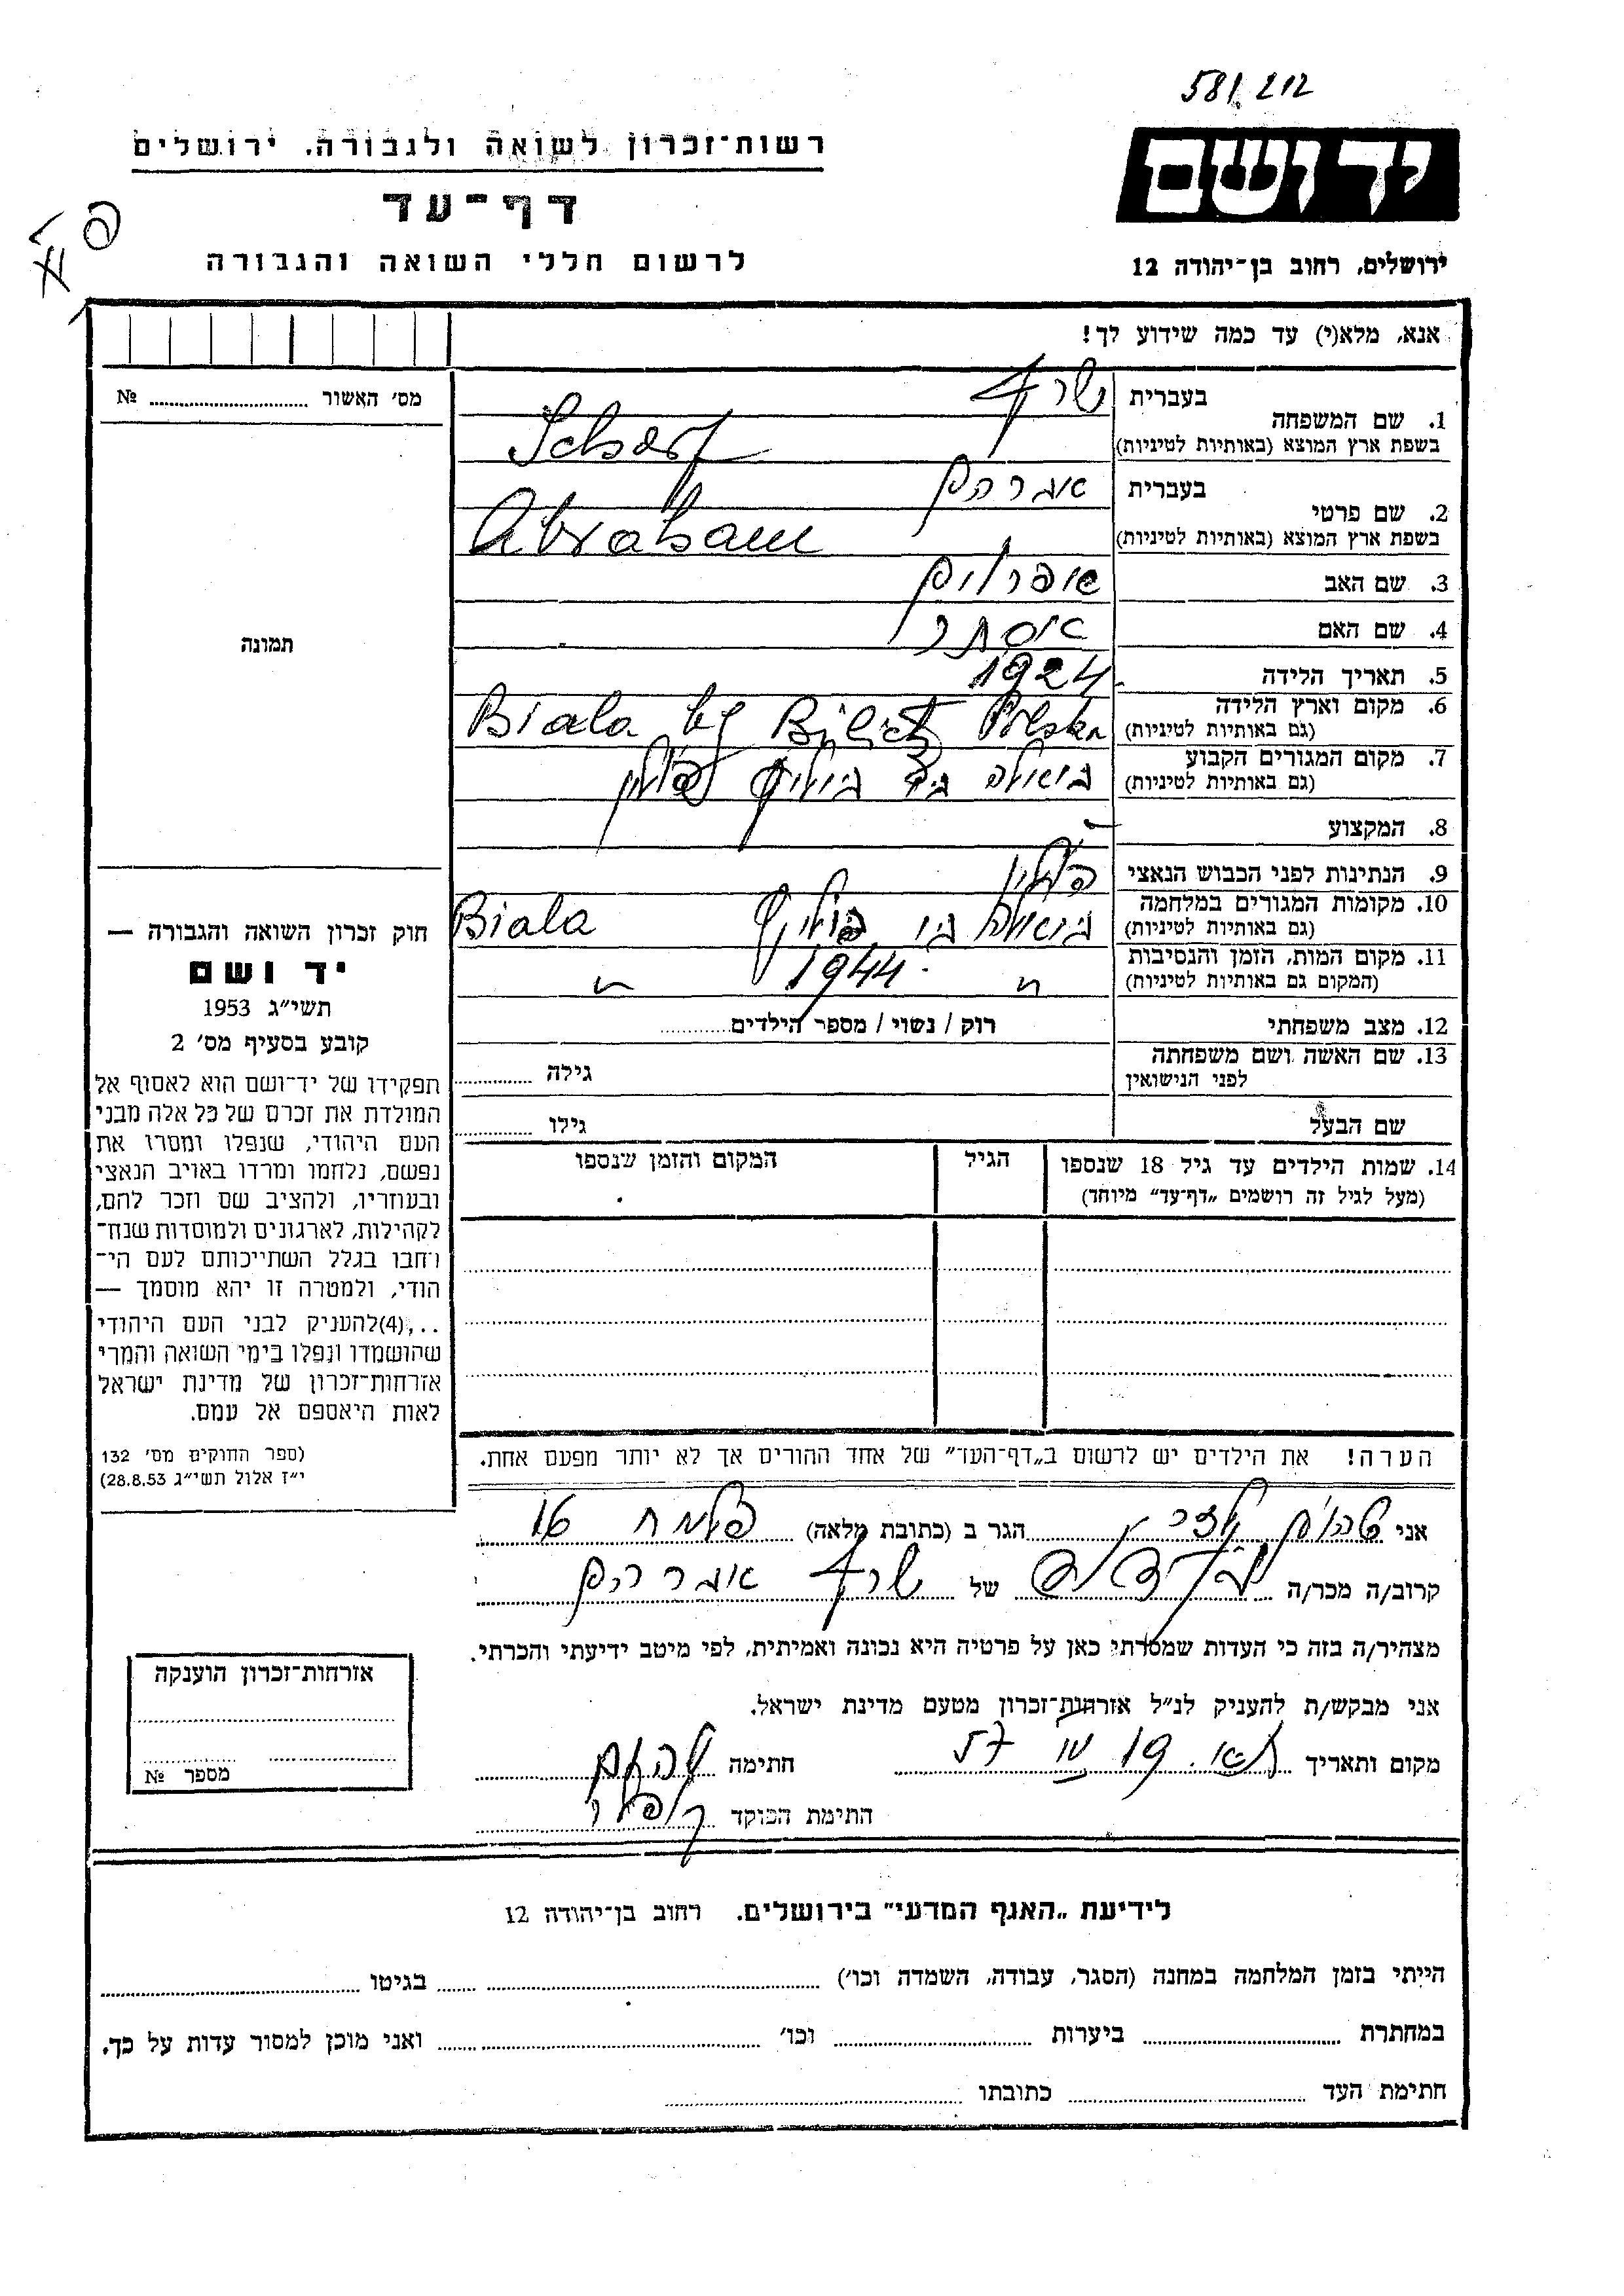 581/212
יד ושם
רשות־זכרון לשואה ולגבורה, ירושלים
דף־עד
לרשום חללי השואה והגבורה
ירושלים, רחוב בן־יהודה 12
אנא, מלא(י) עד כמה שידוע לך!
מס׳ האשור № ........
תמונה
1. שם המשפחה
בעברית שרף
בשפת ארץ המוצא (באותיות לטיניות) Scharf
2. שם פרטי
בעברית אברהם
בשפת ארץ המוצא (באותיות לטיניות) Abraham
3. שם האב אפרים
4. שם האם אסתר
5. תאריך הלידה 1924
6. מקום וארץ הלידה
(גם באותיות לטיניות) Biala by Bielitz Polska
7. מקום המגורים הקבוע
(גם באותיות לטיניות) ביאלה ביי ביליץ פולין
8. המקצוע -
9. הנתינות לפני הכבוש הנאצי פולין
10. מקומות המגורים במלחמה
(גם באותיות לטיניות) ביאלה ביי ביליץ Biala
11. מקום המות, הזמן והנסיבות
(המקום גם באותיות לטיניות) 1944
12. מצב משפחתי רוק / נשוי / מספר הילדים........
13. שם האשה ושם משפחתה
לפני הנישואין גילה ........
שם הבעל גילו ........
14. שמות הילדים עד גיל 18 שנספו
(מעל לגיל זה רושמים „דף־עד” מיוחד)
הגיל
המקום והזמן שנספו
חוק זכרון השואה והגבורה —
יד ושם
תשי״ג 1953
קובע בסעיף מס׳ 2
תפקידו של יד־ושם הוא לאסוף אל
המולדת את זכרם של כל אלה מבני
העם היהודי, שנפלו ומסרו את
נפשם, נלחמו ומרדו באויב הנאצי
ובעוזריו, ולהציב שם וזכר להם,
לקהילות, לארגונים ולמוסדות שנח־
רחבו בגלל השתייכותם לעם הי־
הודי, ולמטרה זו יהא מוסמך —
..,(4)להעניק לבני העם היהודי
שהושמדו ונפלו בימי השואה והמרי
אזרחות־זכרון של מדינת ישראל
לאות היאספם אל עמם.
(ספר החוקים מס׳ 132
י״ז אלול תשי״ג 28.8.53)
הערה! את הילדים יש לרשום ב„דף־העד” של אחד ההורים אך לא יותר מפעם אחת.
אני הגר ב (כתובת מלאה) פלמח 16
קרוב/ה מכר/ה של שרף אברהם
מצהיר/ה בזה כי העדות שמסרתי כאן על פרטיה היא נכונה ואמיתית, לפי מיטב ידיעתי והכרתי.
אני מבקש/ת להעניק לנ״ל אזרחות־זכרון מטעם מדינת ישראל.
מקום ותאריך 19 57 חתימה
חתימת הפוקד
אזרחות־זכרון הוענקה
מספר №
לידיעת „האגף המדעי” בירושלים. רחוב בן־יהודה 12
הייתי בזמן המלחמה במחנה (הסגר, עבודה, השמדה וכו׳) ........ בגיטו ........
במחתרת ........ ביערות ........ וכו׳ ........ ואני מוכן למסור עדות על כך.
חתימת העד ........ כתובתו ........